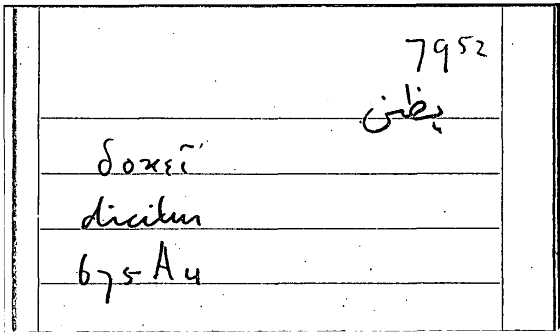 7952
يظن
δοκεῖ
dicitur
675 A 4